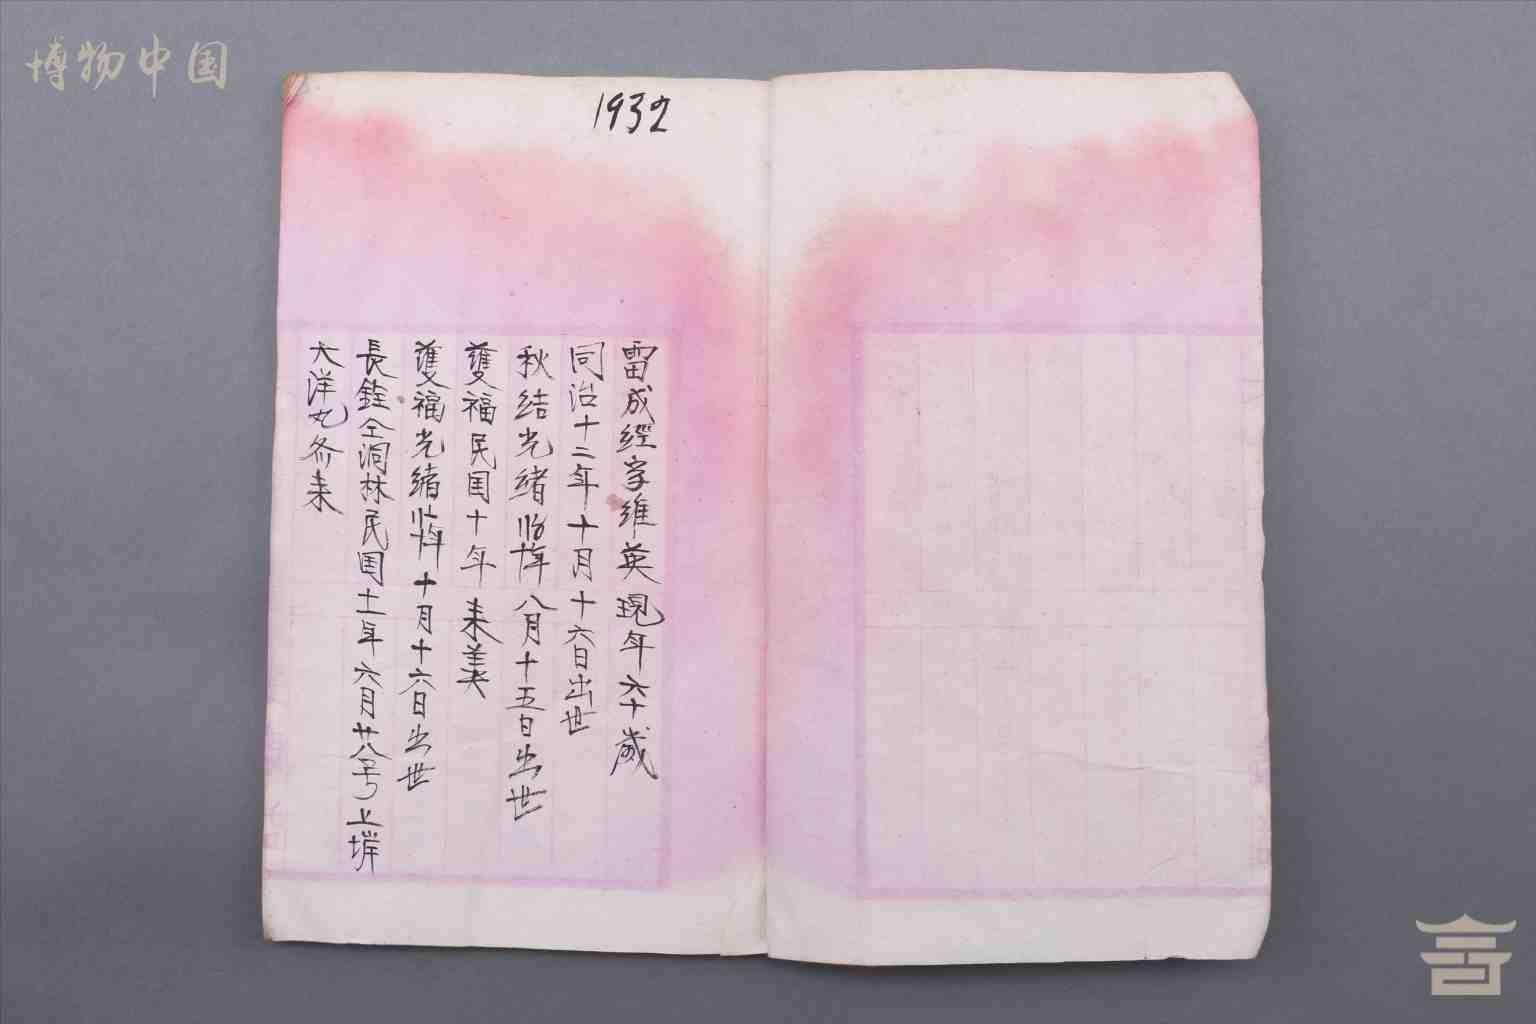 博物中国
1932
雷成經字維英現年六十歲
同治十二年十月十六日出世
秋結光緒 年八月十五日出世
雙福民国十年来美
雙福光緒 年十月十六日出世
長銓仝洞林民国十一年六月廿八号上埠
大洋丸 来